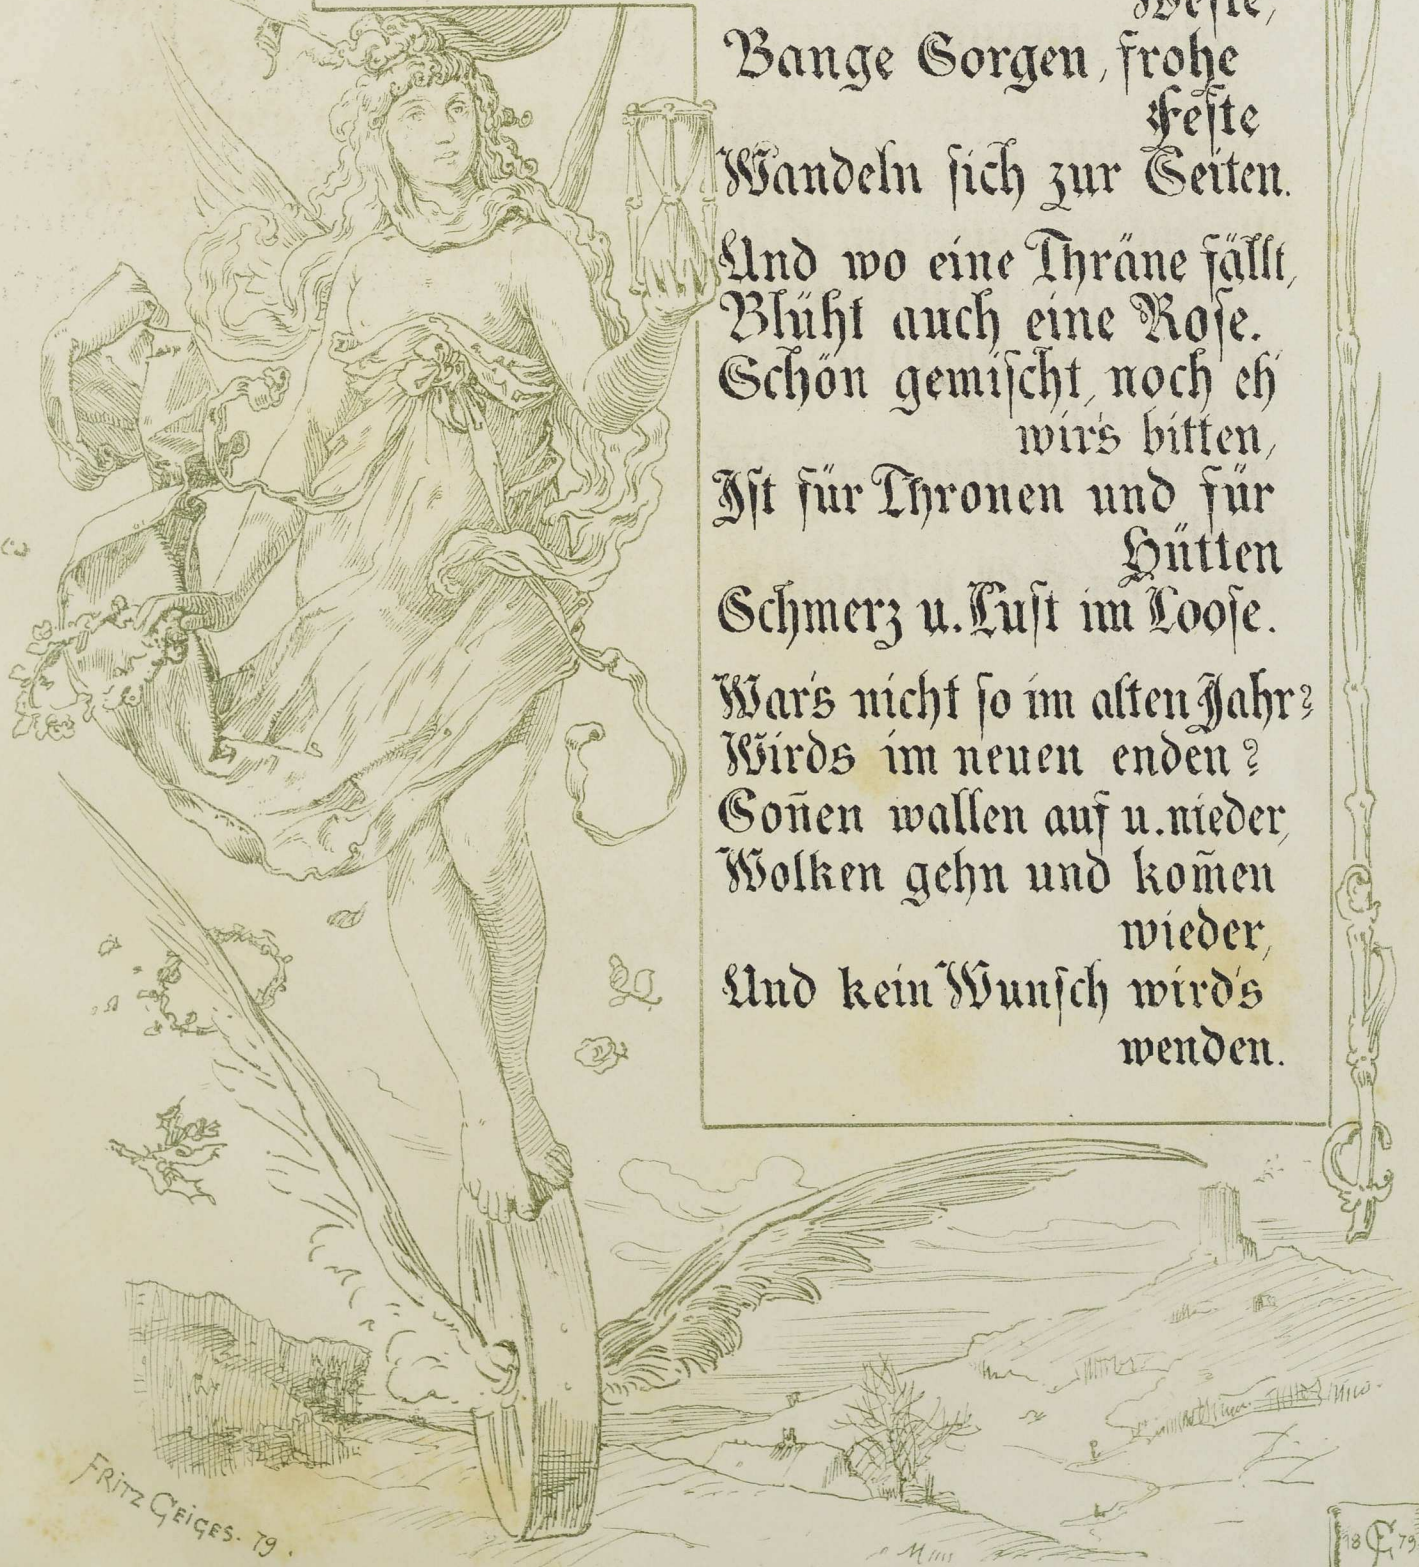 Weſte,
Bange Sorgen, frohe
Feſte
Wandeln ſich zur Seiten.
Und wo eine Thräne fällt,
Blüht auch eine Roſe.
Schön gemiſcht, noch eh'
wir's bitten,
Iſt für Thronen und für
Hütten
Schmerz u. Luſt im Looſe.
War's nicht ſo im alten Jahr?
Wirds im neuen enden?
Son̄en wallen auf u. nieder,
Wolken gehn und kom̄en
wieder,
Und kein Wunſch wird's
wenden.
FRITZ GEIGES. 79.
18 79